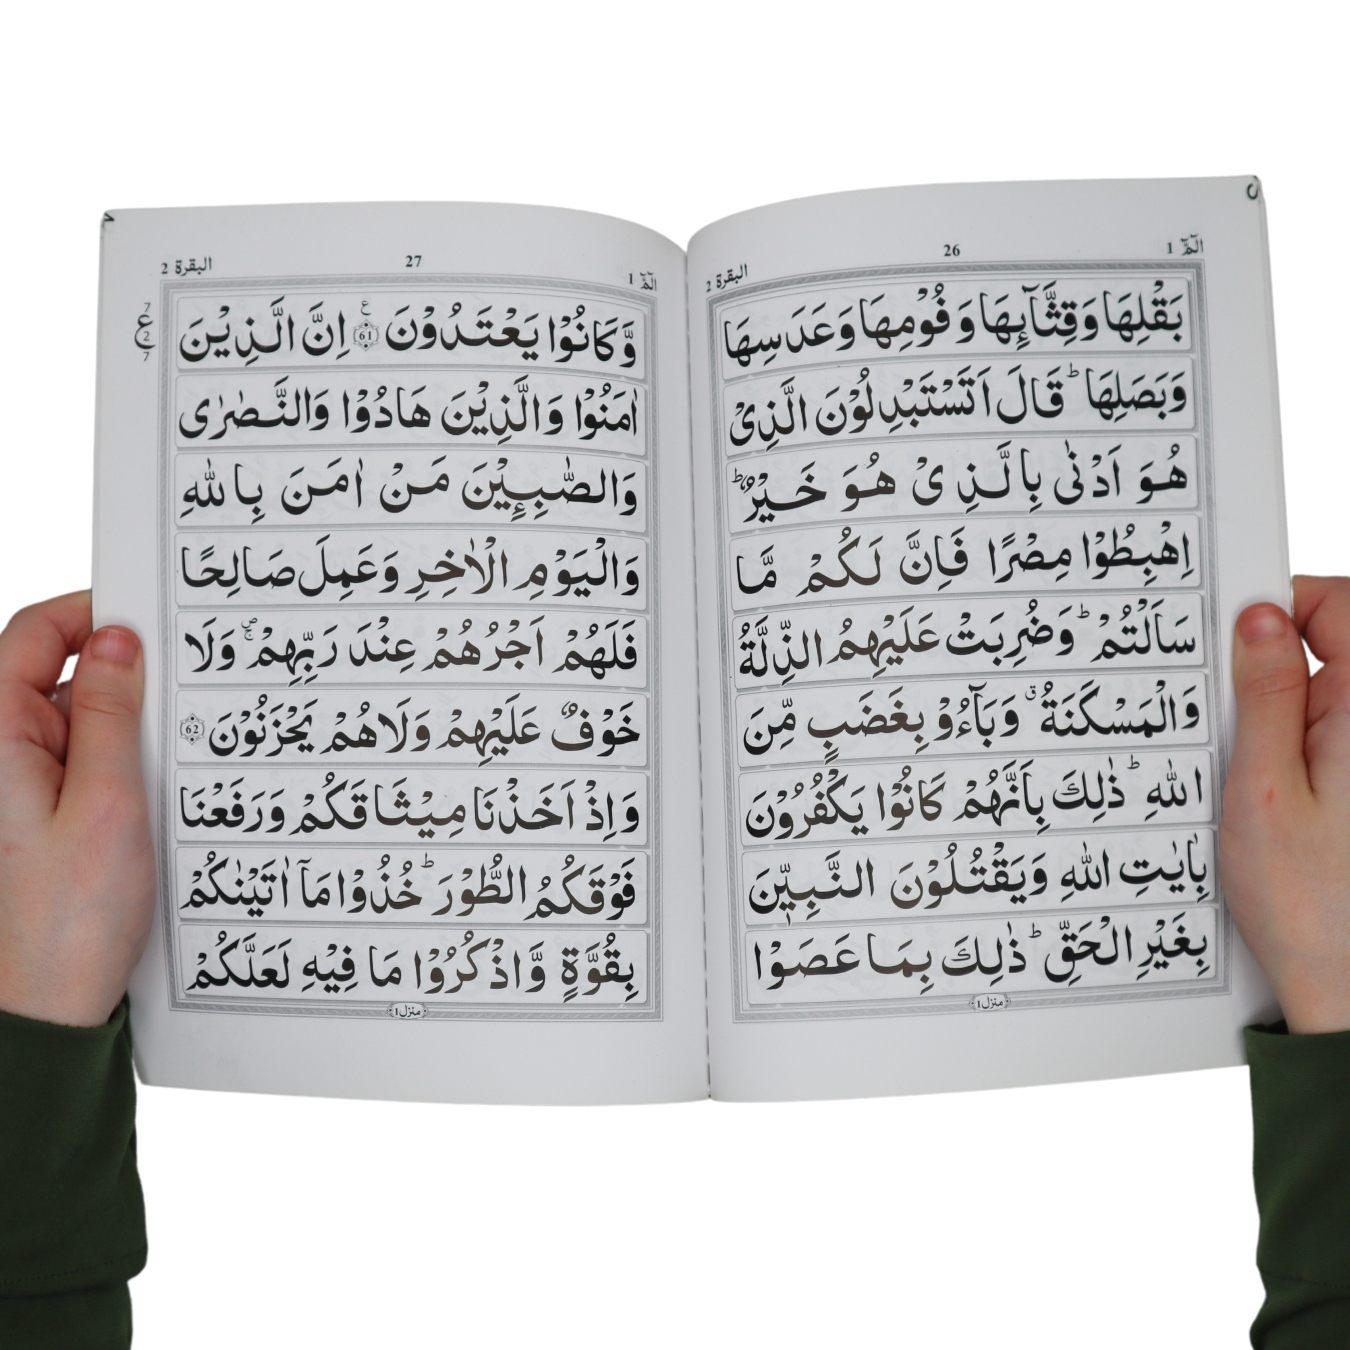 الٓمّٓ 1
26
البقرة 2
بَقْلِهَا وَقِثَّآىِٕهَا وَ فُوْمِهَا وَعَدَسِهَا
وَبَصَلِهَا ؕ قَالَ اَتَسْتَبْدِلُوْنَ الَّذِىْ
هُوَ اَدْنٰى بِالَّذِىْ هُوَ خَيْرٌ ؕ
اِهْبِطُوْا مِصْرًا فَاِنَّ لَكُمْ مَّا
سَاَلْتُمْ ؕ وَضُرِبَتْ عَلَيْهِمُ الذِّلَّةُ
وَالْمَسْكَنَةُ ۗ وَبَآءُوْ بِغَضَبٍ مِّنَ
اللهِ ؕ ذٰلِكَ بِاَنَّهُمْ كَانُوْا يَكْفُرُوْنَ
بِاٰيٰتِ اللهِ وَيَقْتُلُوْنَ النَّبِيّٖنَ
بِغَيْرِ الْحَقِّ ؕ ذٰلِكَ بِمَا عَصَوْا
منزل 1
الٓمّٓ 1
27
البقرة 2
وَّكَانُوْا يَعْتَدُوْنَ 61 ع اِنَّ الَّذِيْنَ
7
ع
2
7
اٰمَنُوْا وَالَّذِيْنَ هَادُوْا وَالنَّصٰرٰى
وَالصّٰبِـِٕيْنَ مَنْ اٰمَنَ بِاللهِ
وَالْيَوْمِ الْاٰخِرِ وَعَمِلَ صَالِحًا
فَلَهُمْ اَجْرُهُمْ عِنْدَ رَبِّهِمْ ۖۚ وَلَا
خَوْفٌ عَلَيْهِمْ وَلَا هُمْ يَحْزَنُوْنَ 62
وَاِذْ اَخَذْنَا مِيْثَاقَكُمْ وَرَفَعْنَا
فَوْقَكُمُ الطُّوْرَ ؕ خُذُوْا مَآ اٰتَيْنٰكُمْ
بِقُوَّةٍ وَّاذْكُرُوْا مَا فِيْهِ لَعَلَّكُمْ
منزل 1